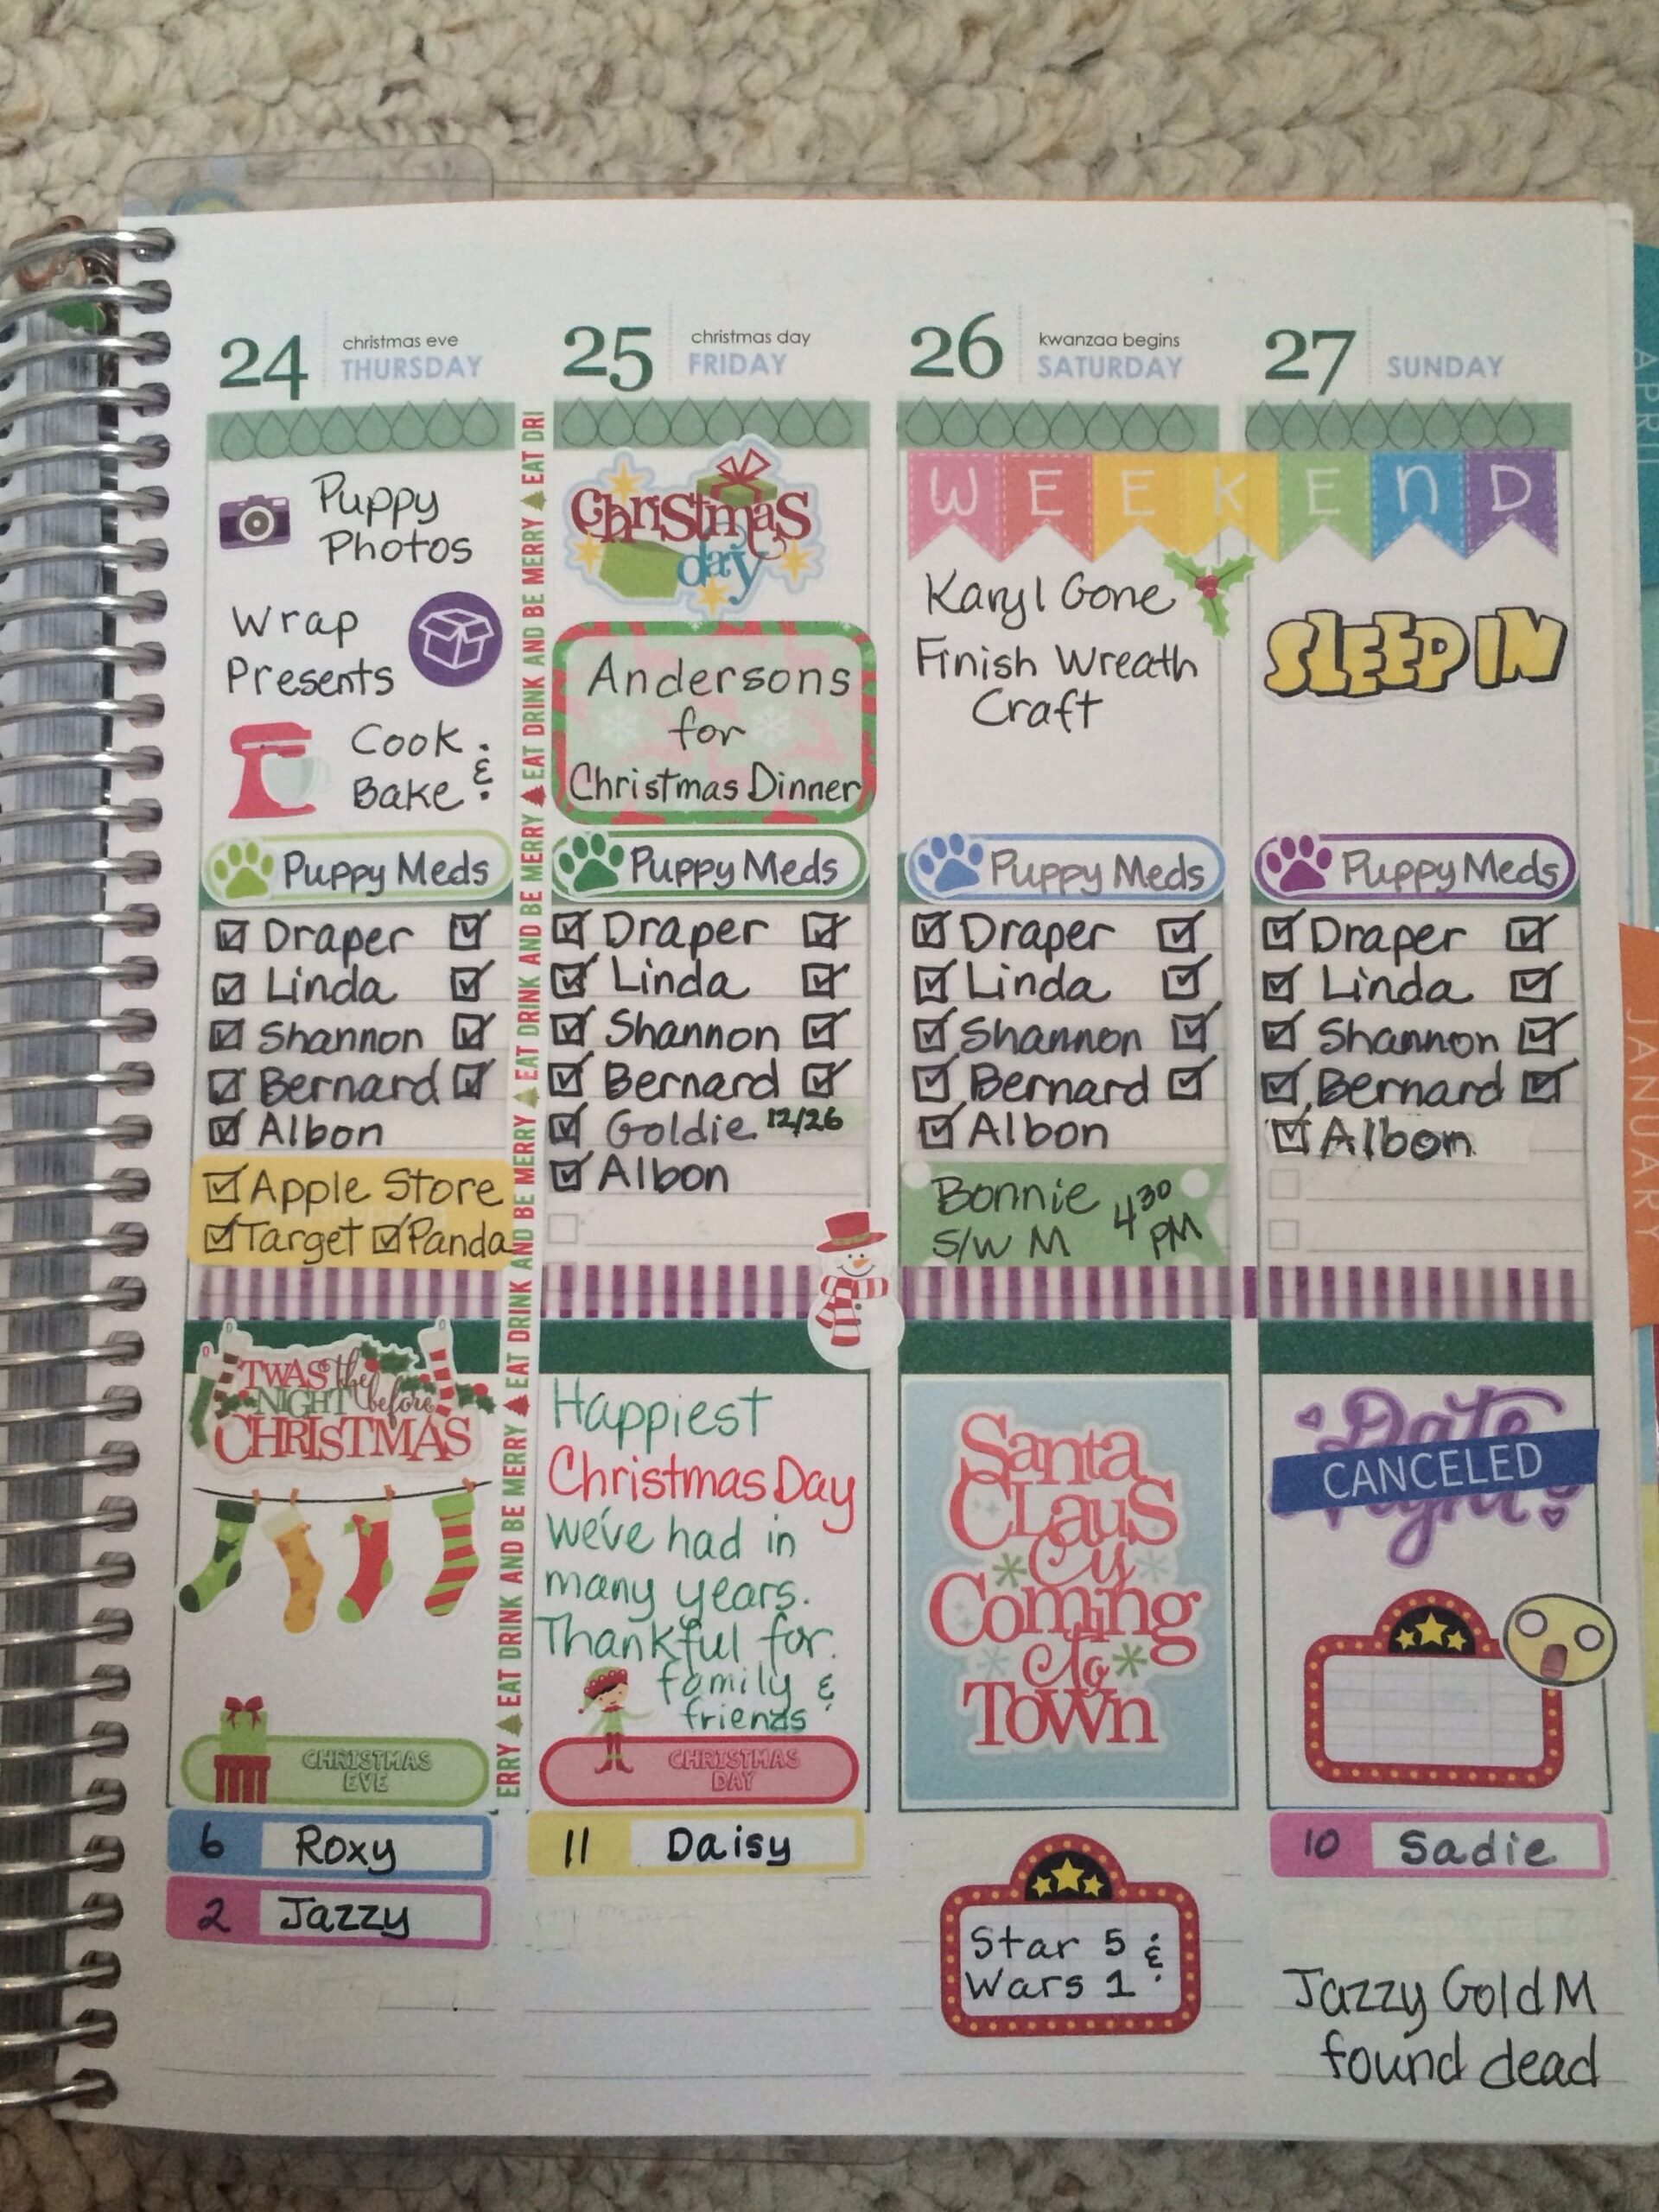 24
christmas eve
THURSDAY
Puppy
Photos
Wrap
Presents
Cook &
Bake
Puppy Meds
Draper
Linda
Shannon
Bernard
Albon
Apple Store
Target Panda
TWAS the
NIGHT before
CHRISTMAS
CHRISTMAS
EVE
6 Roxy
2 Jazzy
ERRY EAT DRINK AND BE MERRY EAT DRINK AND BE MERRY EAT DRINK AND BE MERRY EAT DRINK AND BE MERRY EAT DRINK AND BE MERRY EAT DRI
25
christmas day
FRIDAY
Christmas
day
Andersons
for
Christmas Dinner
Puppy Meds
Draper
Linda
Shannon
Bernard
Goldie 12/26
Albon
Happiest
Christmas Day
we've had in
many years.
Thankful for
family &
friends
CHRISTMAS
DAY
11 Daisy
26
kwanzaa begins
SATURDAY
WEEKEND
Karyl Gone
Finish Wreath
Craft
Puppy Meds
Draper
Linda
Shannon
Bernard
Albon
Bonnie 430
S/W M PM
Santa
CLaus
is
Coming
to
Town
Star 5 &
Wars 1
27
SUNDAY
SLEEP IN
Puppy Meds
Draper
Linda
Shannon
Bernard
Albon
Date
CANCELED
Night!
10 Sadie
Jazzy Gold M
found dead
APRIL
JANUARY